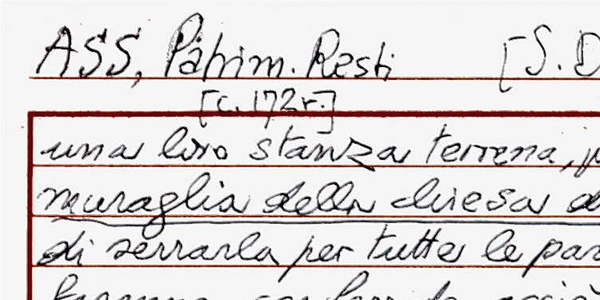 ASS, Patrim. Resti [S. D
[c. 172r.]
una loro stanza terrena, p
muraglia della chiesa d
di serrarla per tutte le par